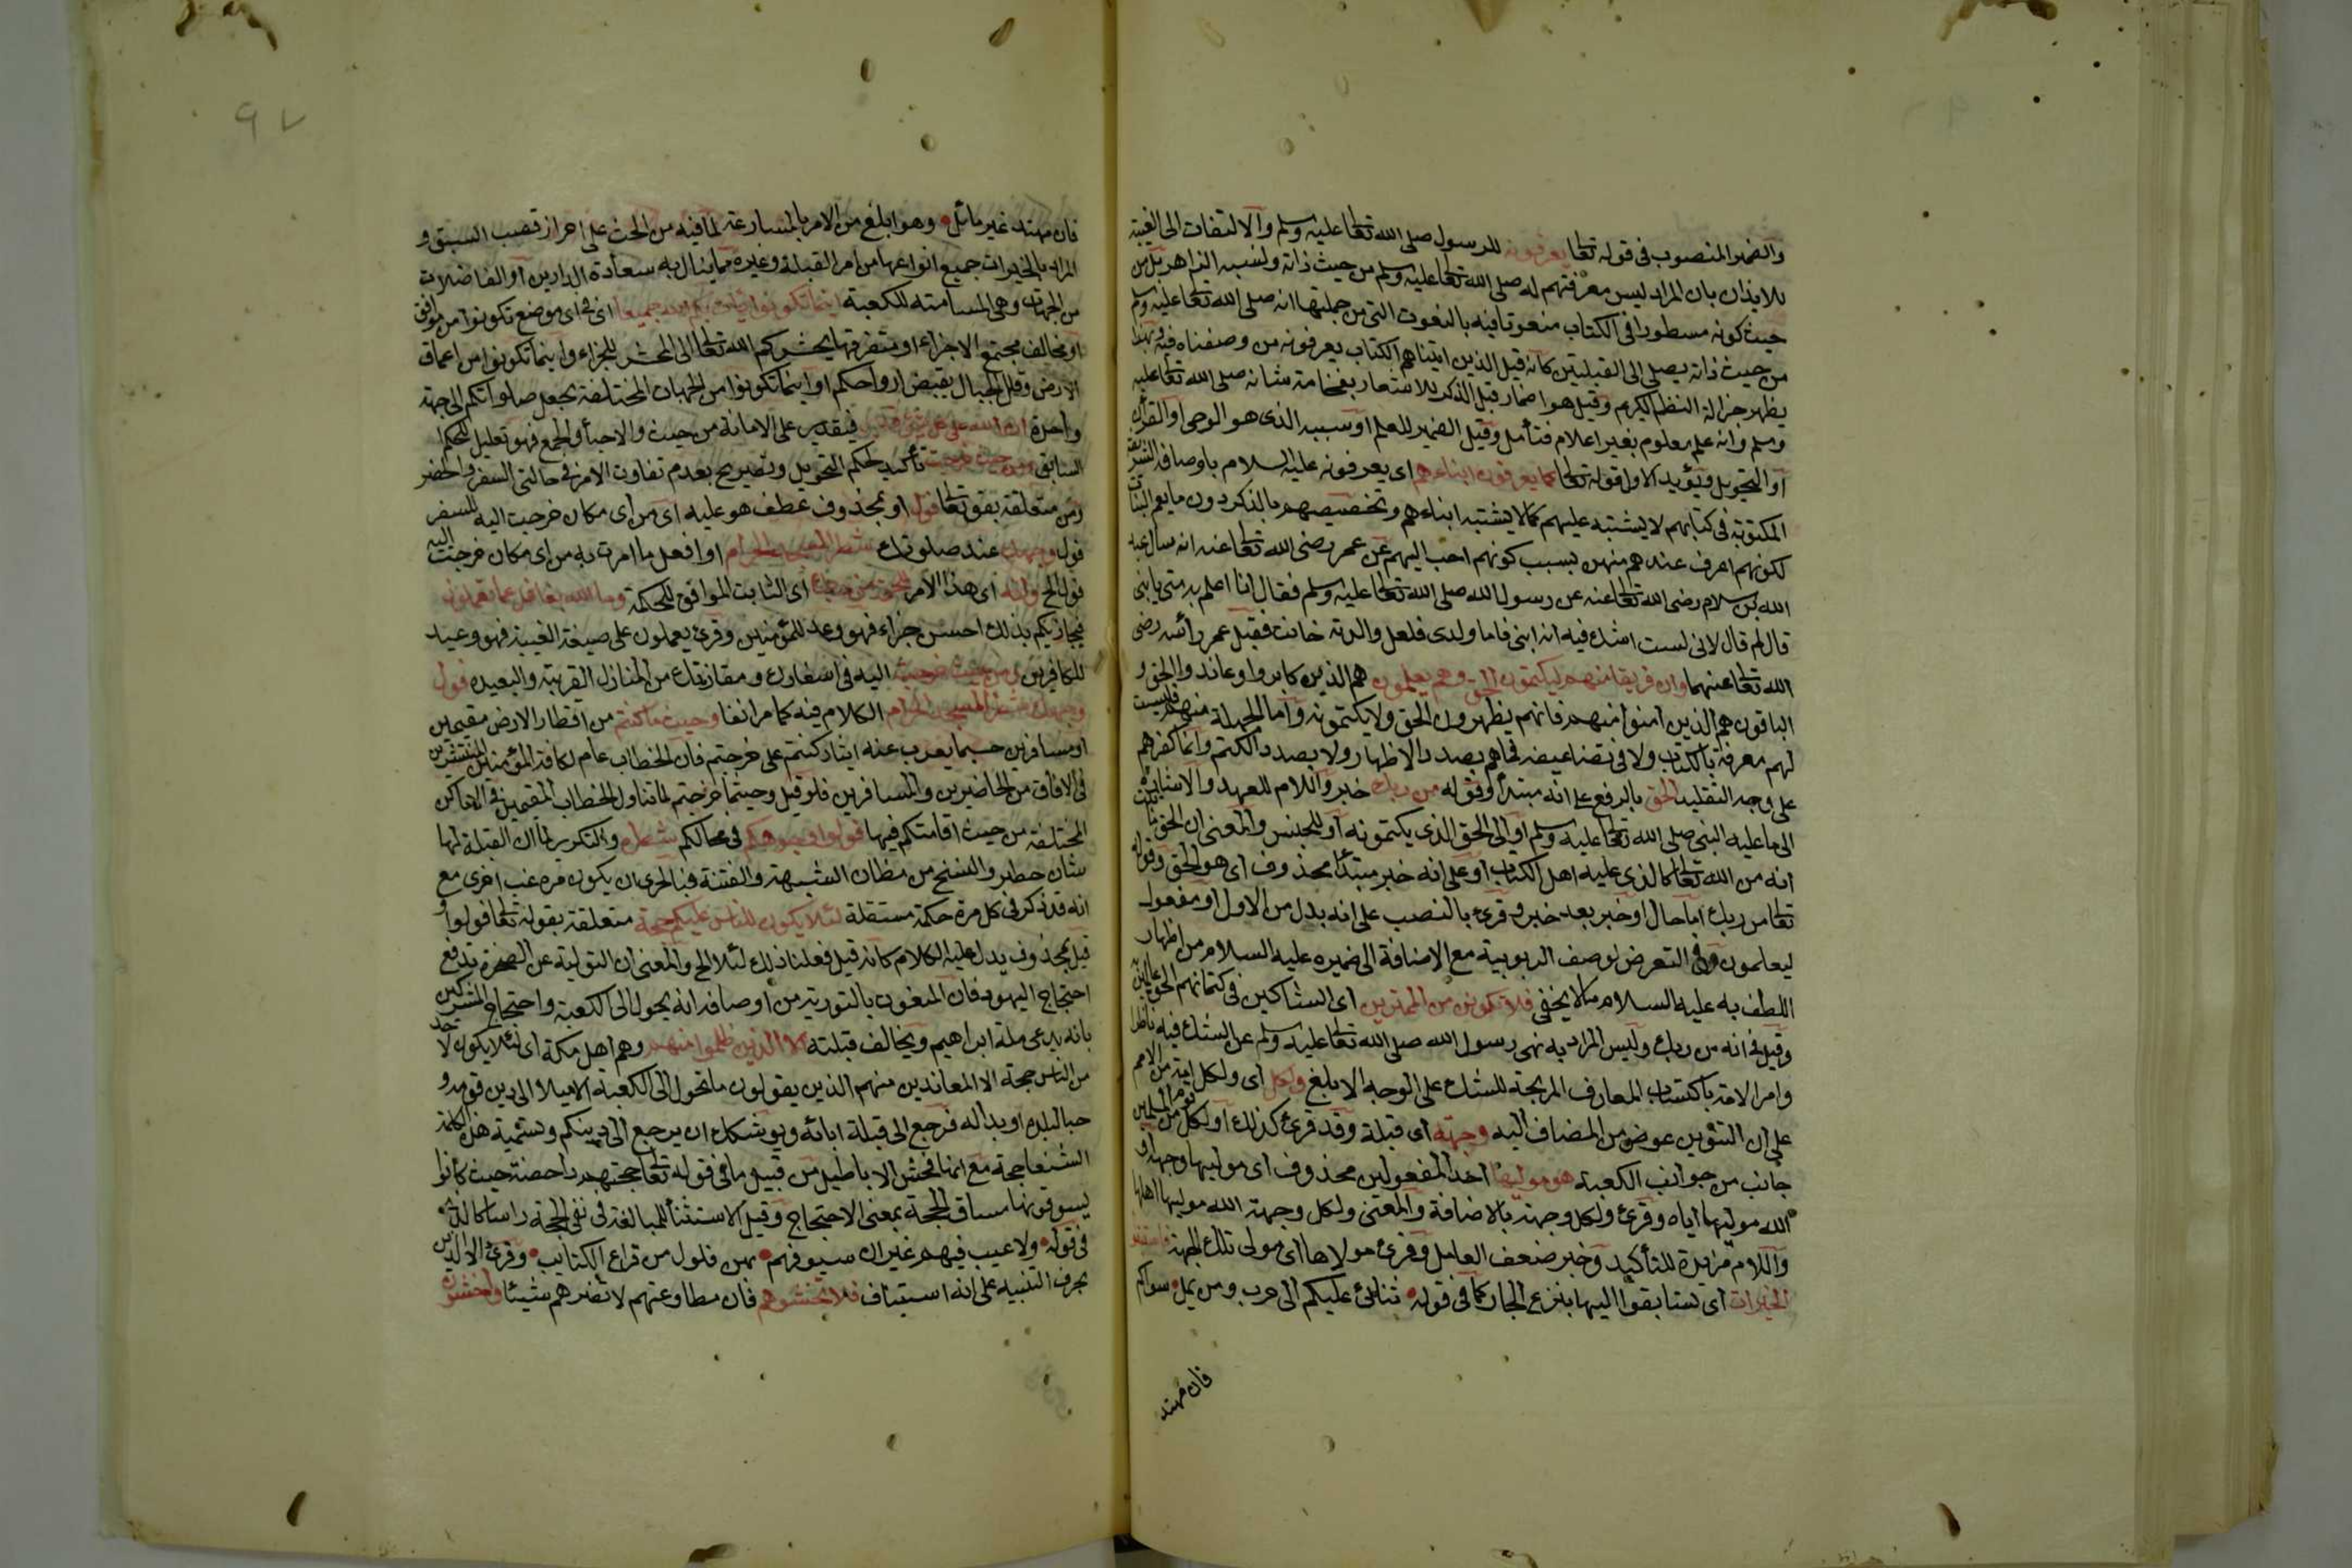 والضمير المنصوب فى قوله تعالى يعرفونه للرسول صلى الله تعالى عليه وسلم والالتفات الى الغيبة
للايذان بان المراد ليس معرفتهم له صلى الله تعالى عليه وسلم من حيث ذاته ونسبه الزاهر بل من
حيث كونه مسطورا فى الكتاب منعوتا فيه بالنعوت التى من جملتها انه صلى الله تعالى عليه وسلم
من حيث ذاته يصلى الى القبلتين كانه قيل الذين اتيناهم الكتاب يعرفونه من وصفناه فيه وبهذا
يظهر جزالة النظم الكريم وقيل هو اضمار قبل الذكر للاستعار بفخامة شانه صلى الله تعالى عليه
وسلم وانه علم معلوم بغير اعلام فتأمل وقيل الضمير للعلم او سببه الذى هو الوحى او القرآن
او التحويل ويؤيد الاول قوله تعالى كما يعرفون ابناءهم اى يعرفونه عليه السلام باوصافه الشريفة
المكتوبة فى كتابهم لا يشتبه عليهم كما لا يشتبه ابناءهم وتخصيصهم بالذكر دون ما يعم البنات
لكونهم اعرف عندهم منهن بسبب كونهم احب اليهم عن عمر رضى الله تعالى عنه انه سأل عبد
الله بن سلام رضى الله تعالى عنه عن رسول الله صلى الله تعالى عليه وسلم فقال انا اعلم به منى يا بنى
قال لم قال لانى لست اشك فيه انه نبى فاما ولدى فلعل والدته خانت فقبل عمر رأسه رضى
الله تعالى عنهما وان فريقا منهم ليكتمون الحق وهم يعلمون هم الذين كابروا وعاندوا الحق و
الباقون هم الذين امنوا منهم فانهم يظهرون الحق ولا يكتمونه واما الجهلة منهم فليست
لهم معرفة بالكتاب ولا فى تضاعيفه فماهم بصدد الاظهار ولا بصدد الكتم وانما كفرهم
على وجه التقليد الحق بالرفع على انه مبتدأ وقوله من ربك خبر واللام للعهد والاشارة
الى ما عليه النبى صلى الله تعالى عليه وسلم او الى الحق الذى يكتمونه او للجنس والمعنى ان الحق ما ثبت
انه من الله تعالى كالذى عليه اهل الكتاب او على انه خبر مبتدأ محذوف اى هو الحق وقوله
تعالى من ربك اما حال او خبر بعد خبر وقرئ بالنصب على انه بدل من الاول او مفعول
ليعلمون وفى التعرض لوصف الربوبية مع الاضافة الى ضميره عليه السلام من اظهار
اللطف به عليه السلام ما لا يخفى فلا تكونن من الممترين اى الشاكين فى كتمانهم الحق عالمين به
وقيل فى انه من ربك وليس المراد به نهى رسول الله صلى الله تعالى عليه وسلم عن الشك فيه
وامر الامة باكتساب المعارف المزيحة للشك على الوجه الابلغ ولكل اى ولكل امة من الامم
على ان التنوين عوض من المضاف اليه وجهة اى قبلة وقد قرئ كذلك او لكل قوم من المسلمين
جانب من جوانب الكعبة هو موليها احد المفعولين محذوف اى موليها وجهه او
الله موليها اياه وقرئ ولكل وجهة بالاضافة والمعنى ولكل وجهة الله موليها اهلها
واللام مزيدة للتأكيد وجبر ضعف العامل وقرئ مولاها اى مولى تلك الجهة فاستبقوا
الخيرات اى تسابقوا اليها بنزع الجار كما فى قوله ثنائى عليكم آل حرب ومن يمل سواكم
فان مهتد
٩٧
فان مهتد غير مائل وهو ابلغ من الامر بالمسارعة لما فيه من الحث على احراز قصب السبق و
المراد بالخيرات جميع انواعها من امر القبلة وغيره مما ينال به سعادة الدارين او الفاضلات
من الجهات وهى المسامته للكعبة اينما تكونوا يأت بكم الله جميعا اى فى اى موضع تكونوا من موافق
او مخالف مجتمع الاجزاء او متفرقها يحشركم الله تعالى الى المحشر للجزاء واينما تكونوا من اعماق
الارض وقلل الجبال يقبض ارواحكم او اينما تكونوا من الجهات المختلفة يجعل صلواتكم الى جهة
واحدة ان الله على كل شئ قدير فيقدر على الاماتة من حيث والاحياء والجمع فهو تعليل للحكم
السابق ومن حيث خرجت تأكيد لحكم التحويل وتصريح بعدم تفاوت الامر فى حالتى السفر والحضر
ومن متعلقة بقوله تعالى فول او بمحذوف عطف هو عليه اى من اى مكان خرجت اليه للسفر
فول وجهك عند صلوتك شطر المسجد الحرام او افعل ما امرت به من اى مكان خرجت اليه
فول الخ وانه اى هذا الامر للحق من ربك اى الثابت الموافق للحكمة وما الله بغافل عما تعملون
فيجازيكم بذلك احسن جزاء فهو وعد للمؤمنين وقرئ يعملون على صيغة الغيبة فهو وعيد
للكافرين ومن حيث خرجت اليه فى اسفارك ومغازيك من المنازل القريبة والبعيدة فول
وجهك شطر المسجد الحرام الكلام فيه كما مر انفا وحيث ما كنتم من اقطار الارض مقيمين
او مسافرين حسبما يعرب عنه ايثار كنتم على خرجتم فان الخطاب عام لكافة المؤمنين المنتشرين
فى الافاق من الحاضرين والمسافرين فلو قيل وحيثما خرجتم لما تناول الخطاب المقيمين فى الاماكن
المختلفة من حيث اقامتكم فيها فولوا وجوهكم فى محالكم شطره والتكرير لما ان القبلة لها
شان خطير والنسخ من مظان الشبهة والفتنة فبالحرى ان يكون مرة غب اخرى مع
انه قد ذكر فى كل مرة حكمة مستقلة لئلا يكون للناس عليكم حجة متعلقة بقوله تعالى فولوا و
قيل بمحذوف يدل عليه الكلام كانه قيل فعلنا ذلك لئلا الخ والمعنى ان التولية عن الصخرة تدفع
احتجاج اليهود فان المنعوت بالتورية من اوصافه انه يحول الى الكعبة واحتجاج المشركين
بانه يدعى ملة ابراهيم ويخالف قبلته الا الذين ظلموا منهم وهم اهل مكة اى لئلا يكون لاحد
من الناس حجة الا المعاندين منهم الذين يقولون ما تحول الى الكعبة الا ميلا الى دين قومه و
حبا لبلده او بدا له فرجع الى قبلة ابائه ويوشك ان يرجع الى دينكم وتسمية هذه الكلمة
الشنعا حجة مع انها افحش الاباطيل من قبيل ما فى قوله تعالى حجتهم داحضة حيث كانوا
يسوقونها مساق الحجة بمعنى الاحتجاج وقيل الاستثناء للمبالغة فى نفى الحجة راسا كالذى
فى قوله ولا عيب فيهم غير ان سيوفهم بهن فلول من قراع الكتايب وقرئ الا الذين
بحرف التنبيه على انه استيناف فلا تخشوهم فان مطاوعتهم لا تضرهم شيئا واخشونى